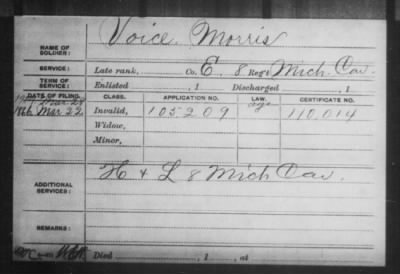 NAME OF SOLDIER: Voice, Morris
SERVICE: Late rank, Co. E, 8 Reg't Mich. Cav.
TERM OF SERVICE: Enlisted , 1 Discharged , 1
DATE OF FILING. CLASS. APPLICATION NO. LAW. CERTIFICATE NO.
Mar 22 Invalid, 105209 110,014
Widow,
Minor,
ADDITIONAL SERVICES: H & L 8 Mich Cav
REMARKS:
Died , 1 , at